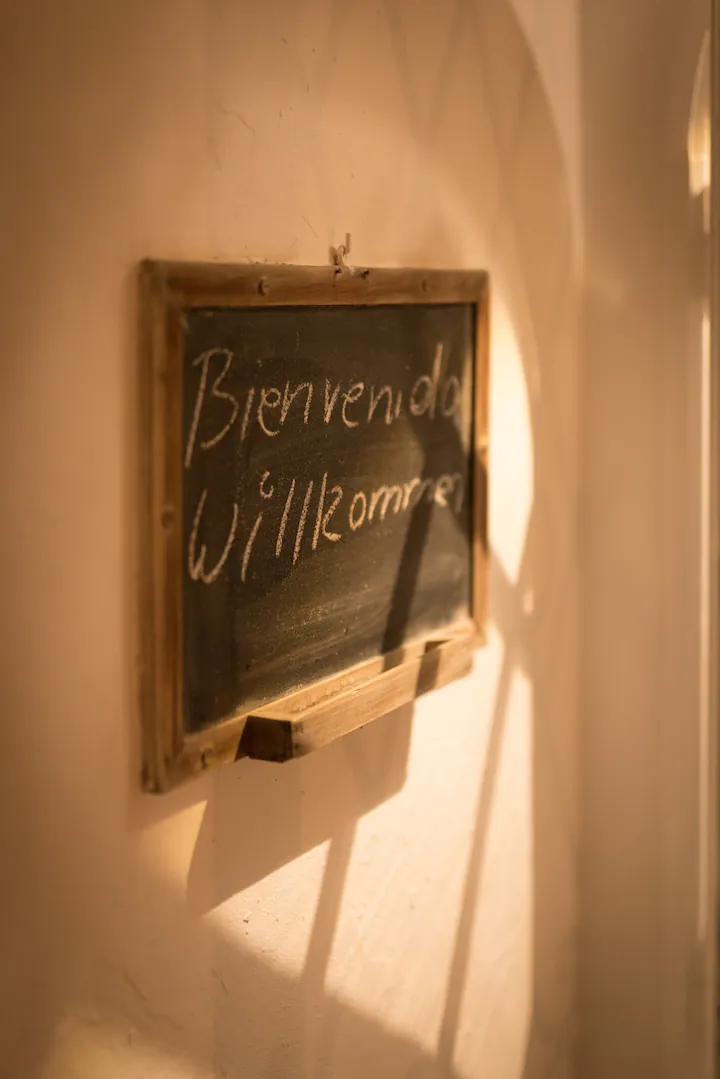 Bienvenido
Willkommen